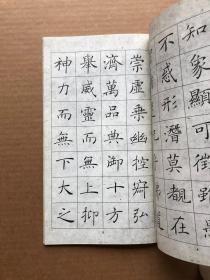 知象顯可徵雖
不惑形潛莫覩在
崇虛乗幽控寂弘
濟萬品典御十方
舉威靈而無上抑
神力而無下大之